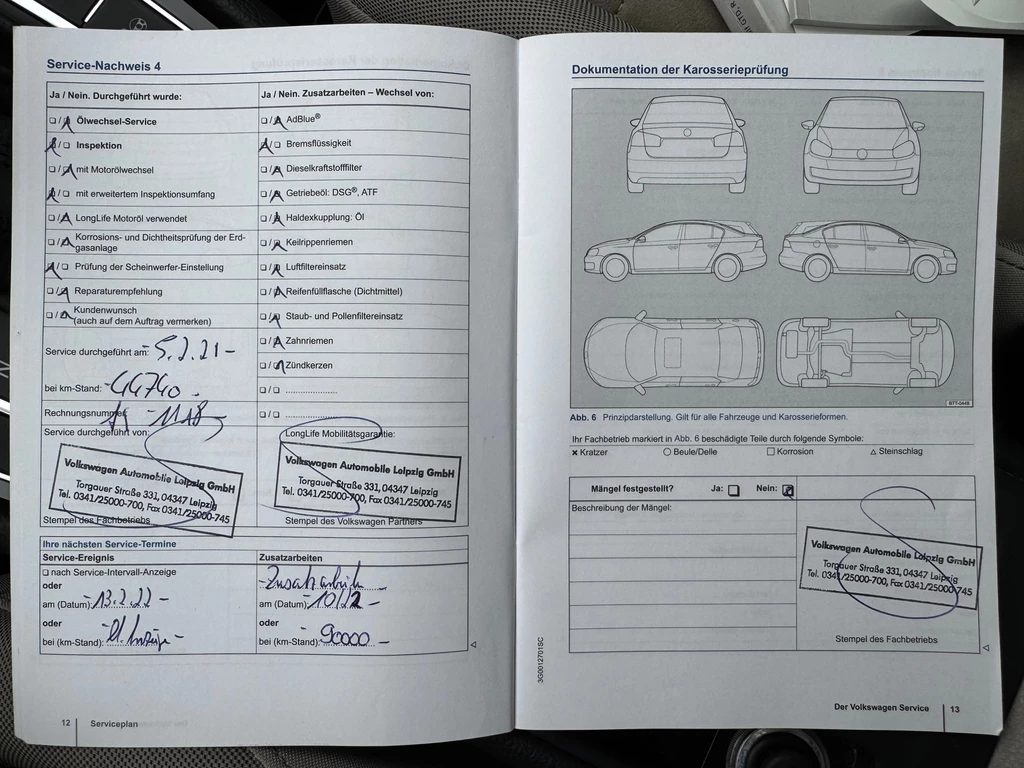 Service-Nachweis 4
Ja / Nein. Durchgeführt wurde:
Ja / Nein. Zusatzarbeiten – Wechsel von:
Ölwechsel-Service
AdBlue®
Inspektion
Bremsflüssigkeit
mit Motorölwechsel
Dieselkraftstofffilter
mit erweitertem Inspektionsumfang
Getriebeöl: DSG®, ATF
LongLife Motoröl verwendet
Haldexkupplung: Öl
Korrosions- und Dichtheitsprüfung der Erd-
gasanlage
Keilrippenriemen
Prüfung der Scheinwerfer-Einstellung
Luftfiltereinsatz
Reparaturempfehlung
Reifenfüllflasche (Dichtmittel)
Kundenwunsch
(auch auf dem Auftrag vermerken)
Staub- und Pollenfiltereinsatz
Zahnriemen
Zündkerzen
Service durchgeführt am: 5.2.21
bei km-Stand: 44740
Rechnungsnummer
Service durchgeführt von:
LongLife Mobilitätsgarantie:
Volkswagen Automobile Leipzig GmbH
Torgauer Straße 331, 04347 Leipzig
Tel. 0341/25000-700, Fax 0341/25000-745
Volkswagen Automobile Leipzig GmbH
Torgauer Straße 331, 04347 Leipzig
Tel. 0341/25000-700, Fax 0341/25000-745
Stempel des Fachbetriebs
Stempel des Volkswagen Partners
Ihre nächsten Service-Termine
Service-Ereignis
Zusatzarbeiten
nach Service-Intervall-Anzeige
oder
am (Datum): 13.2.22
oder
bei (km-Stand):
Zusatzarbeiten
am (Datum): 10/22
oder
bei (km-Stand): 90000
12 Serviceplan
Dokumentation der Karosserieprüfung
B7T-0449
Abb. 6 Prinzipdarstellung. Gilt für alle Fahrzeuge und Karosserieformen.
Ihr Fachbetrieb markiert in Abb. 6 beschädigte Teile durch folgende Symbole:
× Kratzer ○ Beule/Delle □ Korrosion △ Steinschlag
Mängel festgestellt? Ja: Nein:
Beschreibung der Mängel:
Volkswagen Automobile Leipzig GmbH
Torgauer Straße 331, 04347 Leipzig
Tel. 0341/25000-700, Fax 0341/25000-745
Stempel des Fachbetriebs
3G0012701SC
Der Volkswagen Service 13